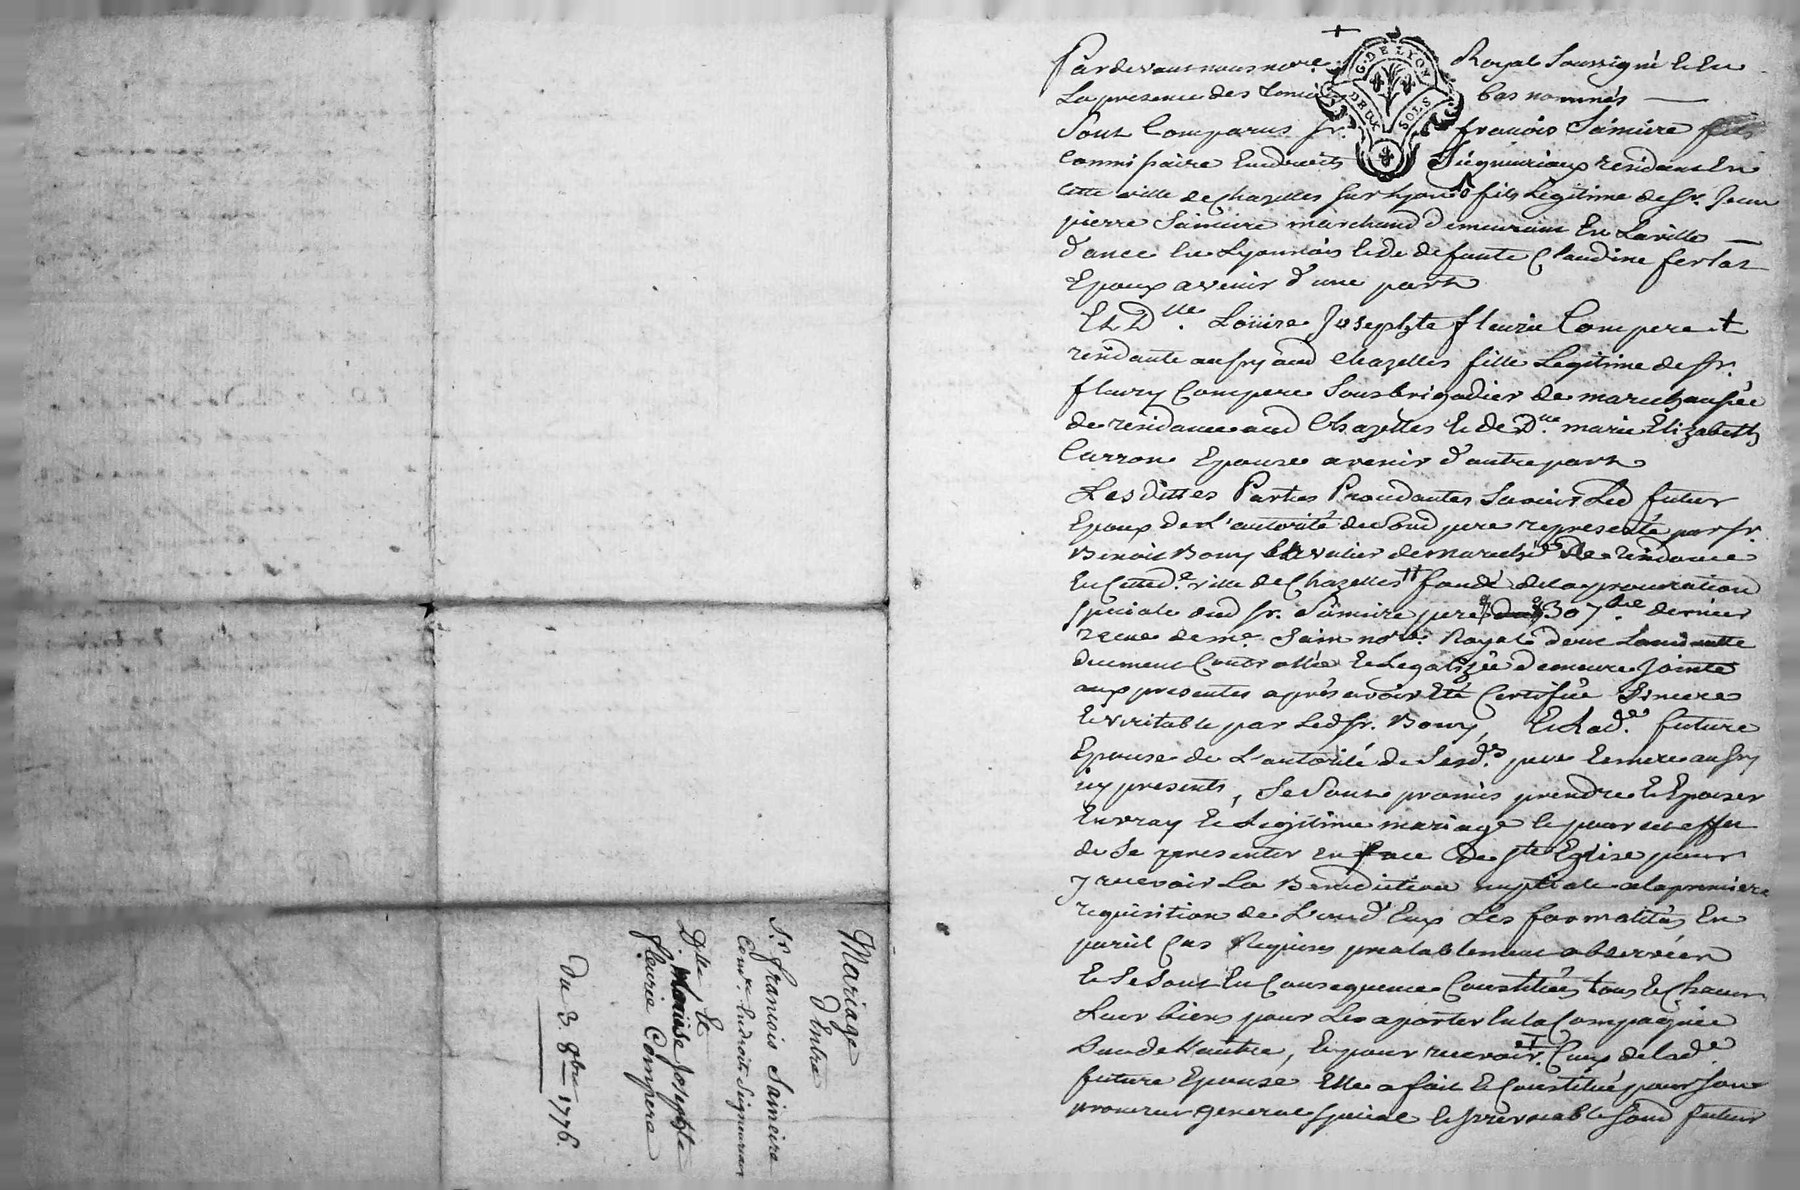 Mariage
D'Entre
Sr. francois Saincire
Comre. En droits Seigneuriaux
Et
Dlle. Loüise Josephte
fleurie Compere
Du 3. 8bre 1776.
G. DE LYON
DEUX SOLS
Pardevant nous nore. Royal Soussigné Et En
La presence des Temoins bas nommés
Sont Comparus Sr. francois Saincire
Commissaire En droits Seigneuriaux residant En
Cette ville de Chazelles Sur Lyon fils Legitime de Sr. Jean
pierre Saincire marchand demeurant En La ville
d'ance En Lyonnois Et de defunte Claudine ferlat
Epoux avenir d'une part
Et Dlle. Loüise Josephte fleurie Compere +
residante aussy aud Chazelles fille Legitime de Sr.
fleury Compere Sousbrigadier de marechaussée
de residance aud Chazelles Et de Dme. marie Elizabeth
Carron Epouse avenir d'autre part
Lesdittes Parties Procedantes Savoir Led futur
Epoux de L'autorité dud Sond pere representé par Sr.
Benoit Bouy Cavalier de marechée. de residance
En Cette de. ville de Chazelles fondé de la procuration
speciale dud Sr. Saincire pere du 30 7bre dernier
recue de me. nore. Royal dont
duement Controllée Et Legalizée demeure Jointe
aux presentes après avoir Eté Certifiée Sincere
Et veritable par Led Sr. Bouy, Et Lad. future
Epouse de L'autorité de Sesds. pere Et mere aussy
icy presents, Se Sont promis prendre Et Epouser
En vray Et Legitime mariage Et pour cet effet
de Se presenter en face de Ste Eglise pour
y recevoir La Benediction nuptiale a la premiere
requisition de L'un d'Eux Les formalités En
pareil Cas Requises prealablement observées
Et Se Sont En Consequence Constitués tous Et Chacun
Leur biens pour Les aporter En La Compagnie
L'un de L'autre, Et pour recevoir Ceux de Lade.
future Epouse Elle a fait Et Constitué pour Son
procureur general Special Et Irrevocable Sond futur